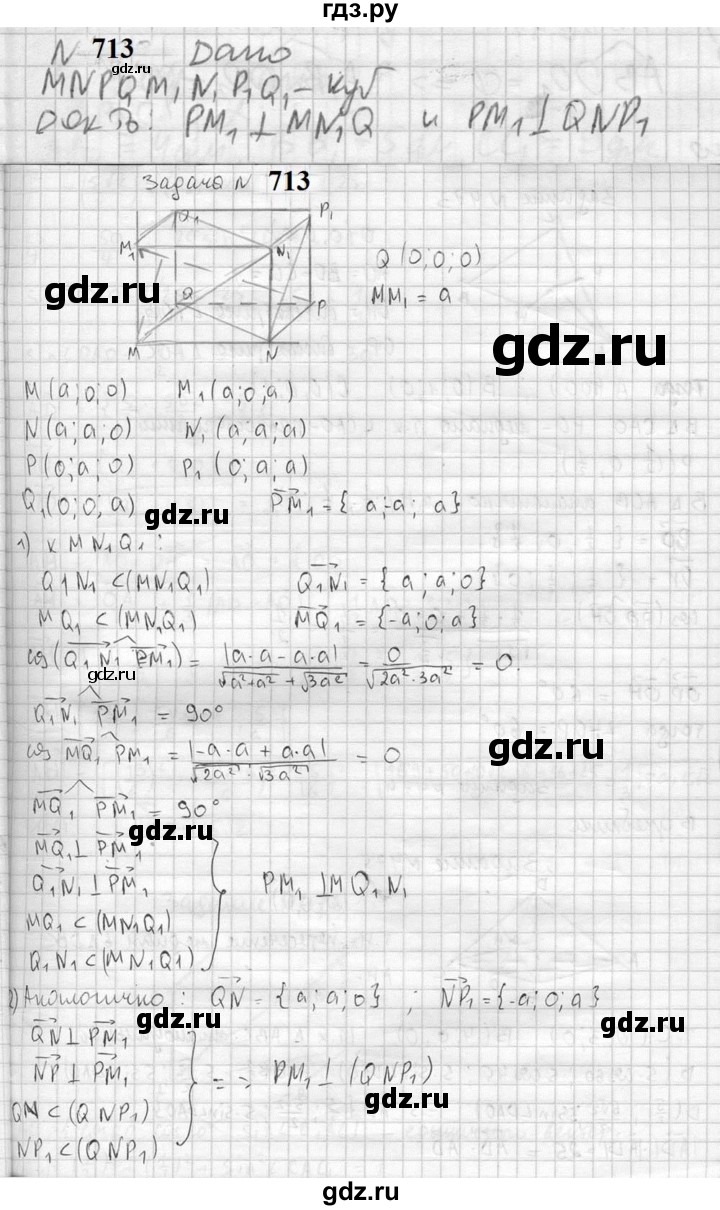 гдз.ру
N 713 Дано
gdz.ru
MNPQM₁N₁P₁Q₁ – куб
Док-ть: PM₁ ⊥ MN₁Q и PM₁ ⊥ QNP₁
Задача N 713
Q₁ P₁
M₁ N₁
Q(0;0;0)
gdz.ru Q P MM₁ = a
gdz.ru
M N
M(a;0;0) M₁(a;0;a)
N(a;a;0) N₁(a;a;a)
P(0;a;0) P₁(0;a;a)
Q₁(0;0;a) gdz.ru PM₁ = {a;-a;a}
1) к MN₁Q₁:
Q₁N₁ ⊂ (MN₁Q₁) Q₁N₁ = {a;a;0}
MQ₁ ⊂ (MN₁Q₁) MQ₁ = {-a;0;a}
cos(Q₁N₁ PM₁) = |a·a - a·a| / √a²+a² + √3a² = 0 / √2a²·3a² = 0.
gdz.ru
Q₁N₁ PM₁ = 90°
cos MQ₁ PM₁ = |-a·a + a·a| / √2a² · √3a² = 0
gdz.ru
MQ₁ PM₁ = 90°
gdz.ru
MQ₁ ⊥ PM₁
Q₁N₁ ⊥ PM₁ PM₁ ⊥ MQ₁N₁
MQ₁ ⊂ (MN₁Q₁)
Q₁N₁ ⊂ (MN₁Q₁)
2) Аналогично: QN = {a;a;0}; NP₁ = {-a;0;a}
gdz.ru gdz.ru
QN ⊥ PM₁
NP ⊥ PM₁ => PM₁ ⊥ (QNP₁)
gdz.ru
QN ⊂ (QNP₁)
NP₁ ⊂ (QNP₁)
gdz.ru